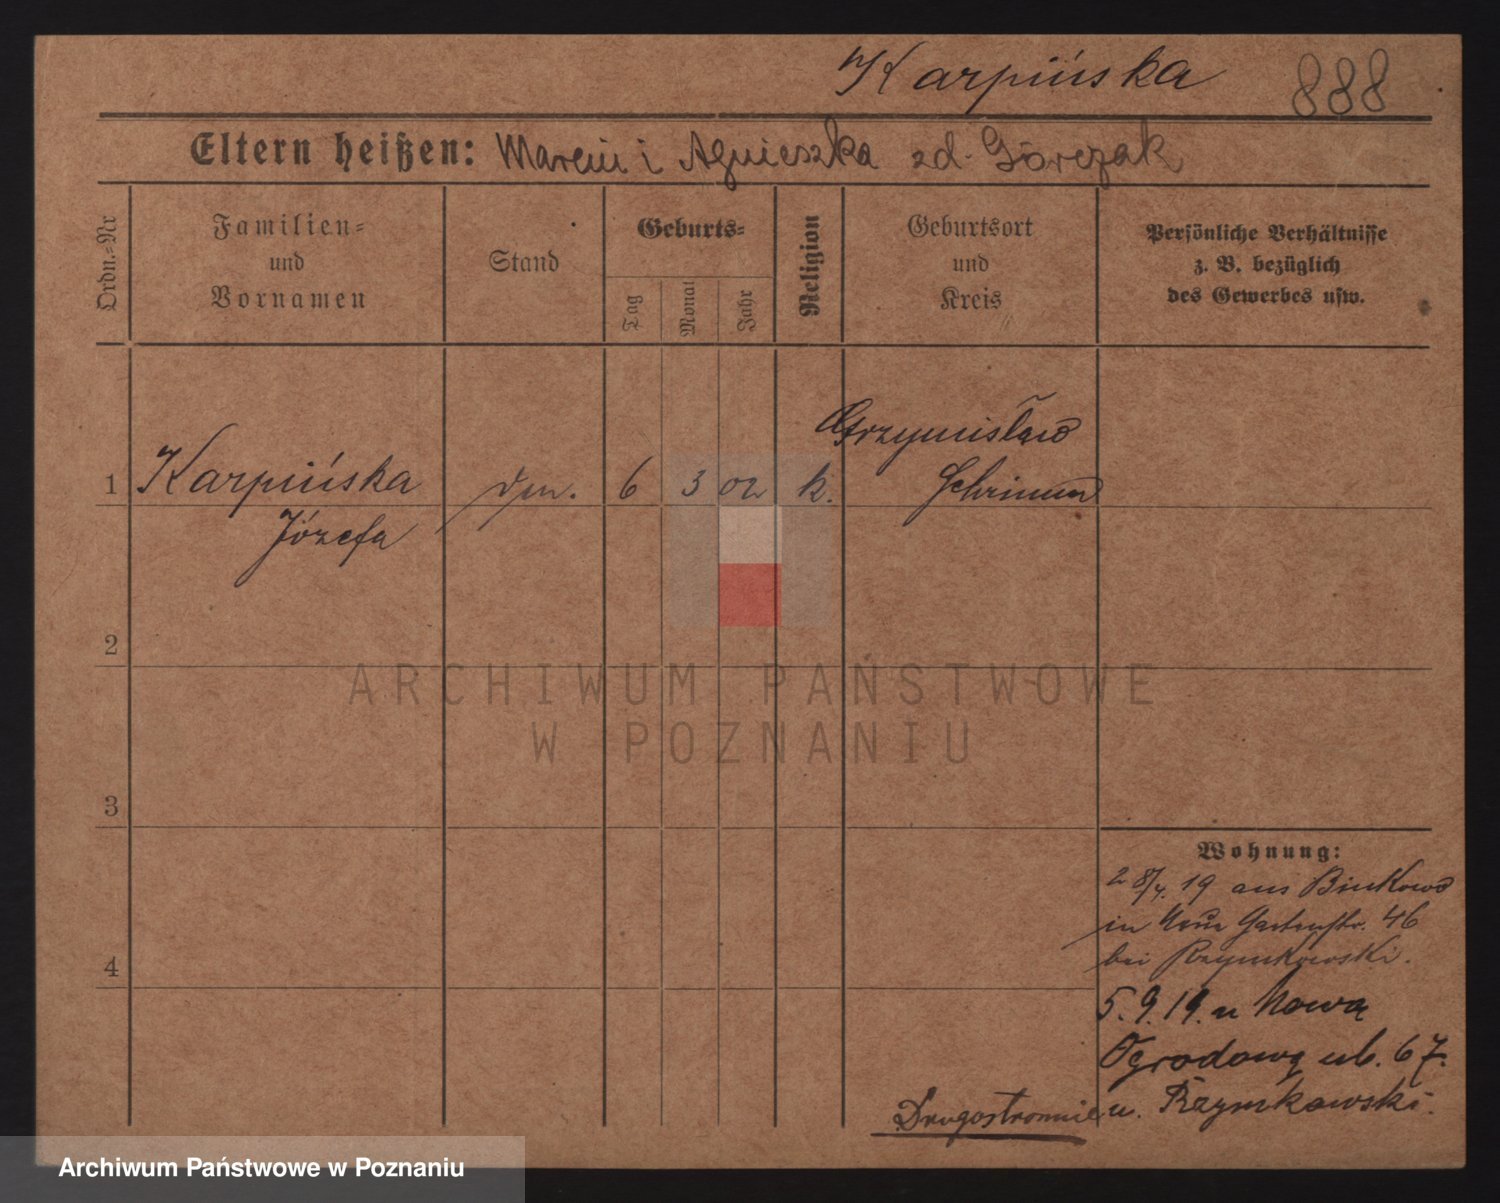 Karpińska 888
Eltern heißen: Marcin i Agnieszka zd. Górczak
Ordn.-Nr
Familien-
und
Vornamen
Stand
Geburts-
Tag
Monat
Jahr
Religion
Geburtsort
und
Kreis
Persönliche Verhältnisse
z. B. bezüglich
des Gewerbes usw.
1 Karpińska 6 3 02 k.
Józefa
Schrimm
2
3
4
ARCHIWUM PAŃSTWOWE
W POZNANIU
Wohnung:
28/4. 19 aus Binkowo
in Neue Gartenstr. 46
bei Rzymkowski.
5.9.19. n Nowa
Ogrodowa ul. 67.
Drugostronnie u. Rzymkowski.
Archiwum Państwowe w Poznaniu